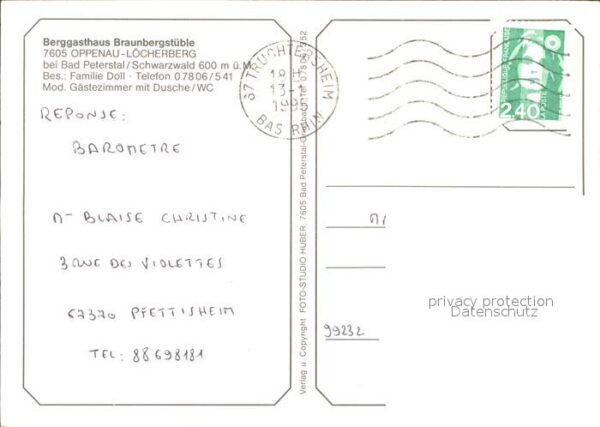 Berggasthaus Braunbergstüble
7605 OPPENAU-LÖCHERBERG
bei Bad Peterstal/Schwarzwald 600 m ü.M.
Bes.: Familie Doll · Telefon 07806/541
Mod. Gästezimmer mit Dusche/WC
REPONSE:
BAROMETRE
BLAISE CHRISTINE
3 RUE DES VIOLETTES
67370 PFETTISHEIM
TEL: 88698181
Verlag u. Copyright FOTO-STUDIO HUBER, 7605 Bad Peterstal
67 TRUCHTERSHEIM
18 H
1995
BAS RHIN
2,40
privacy protection
Datenschutz
99232